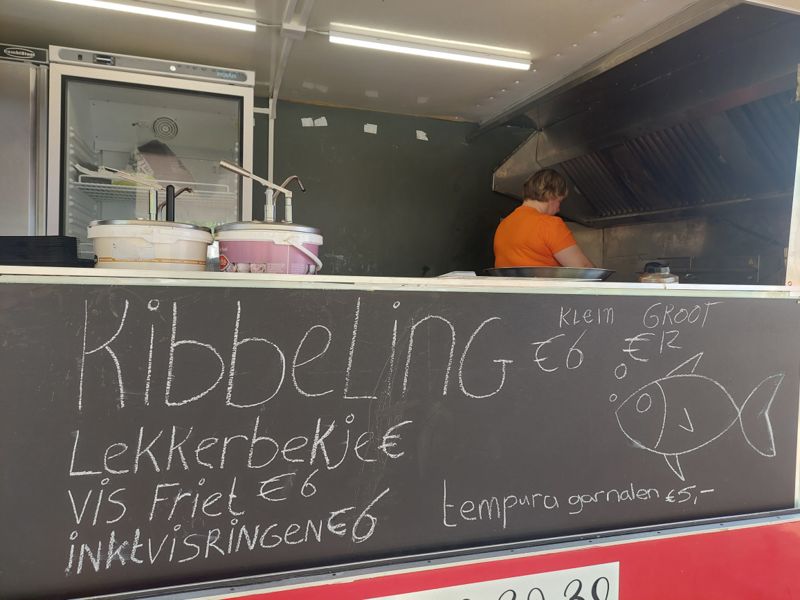 Kibbeling
KLEIN GROOT
€6 €12
Lekkerbekje €
vis Friet €6
inktvisringen €6
tempura garnalen €5,-